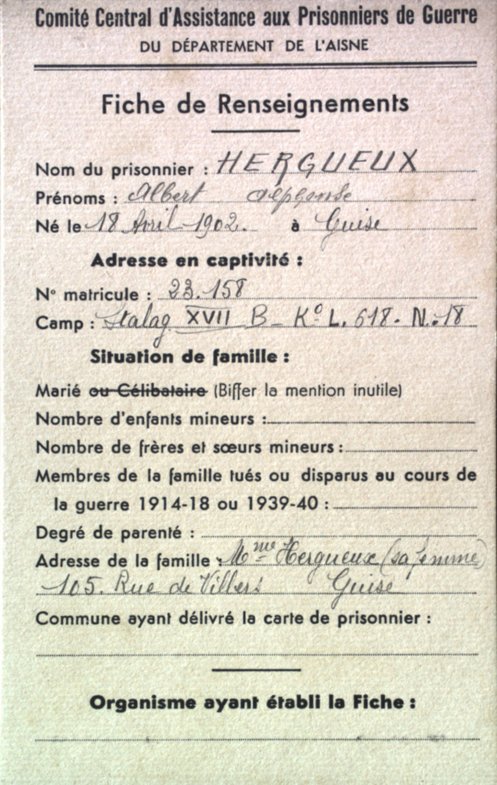 Comité Central d'Assistance aux Prisonniers de Guerre
DU DÉPARTEMENT DE L'AISNE
Fiche de Renseignements
Nom du prisonnier : HERGUEUX
Prénoms : Albert Alphonse
Né le 18 Avril 1902. à Guise
Adresse en captivité :
N° matricule : 23.158
Camp : Stalag XVII B - Ko L. 618 - N. 18
Situation de famille :
Marié ou Célibataire (Biffer la mention inutile)
Nombre d'enfants mineurs :
Nombre de frères et sœurs mineurs :
Membres de la famille tués ou disparus au cours de
la guerre 1914-18 ou 1939-40 :
Degré de parenté :
Adresse de la famille : Mme Hergueux (sa femme)
105. Rue de Villers Guise
Commune ayant délivré la carte de prisonnier :
Organisme ayant établi la Fiche :